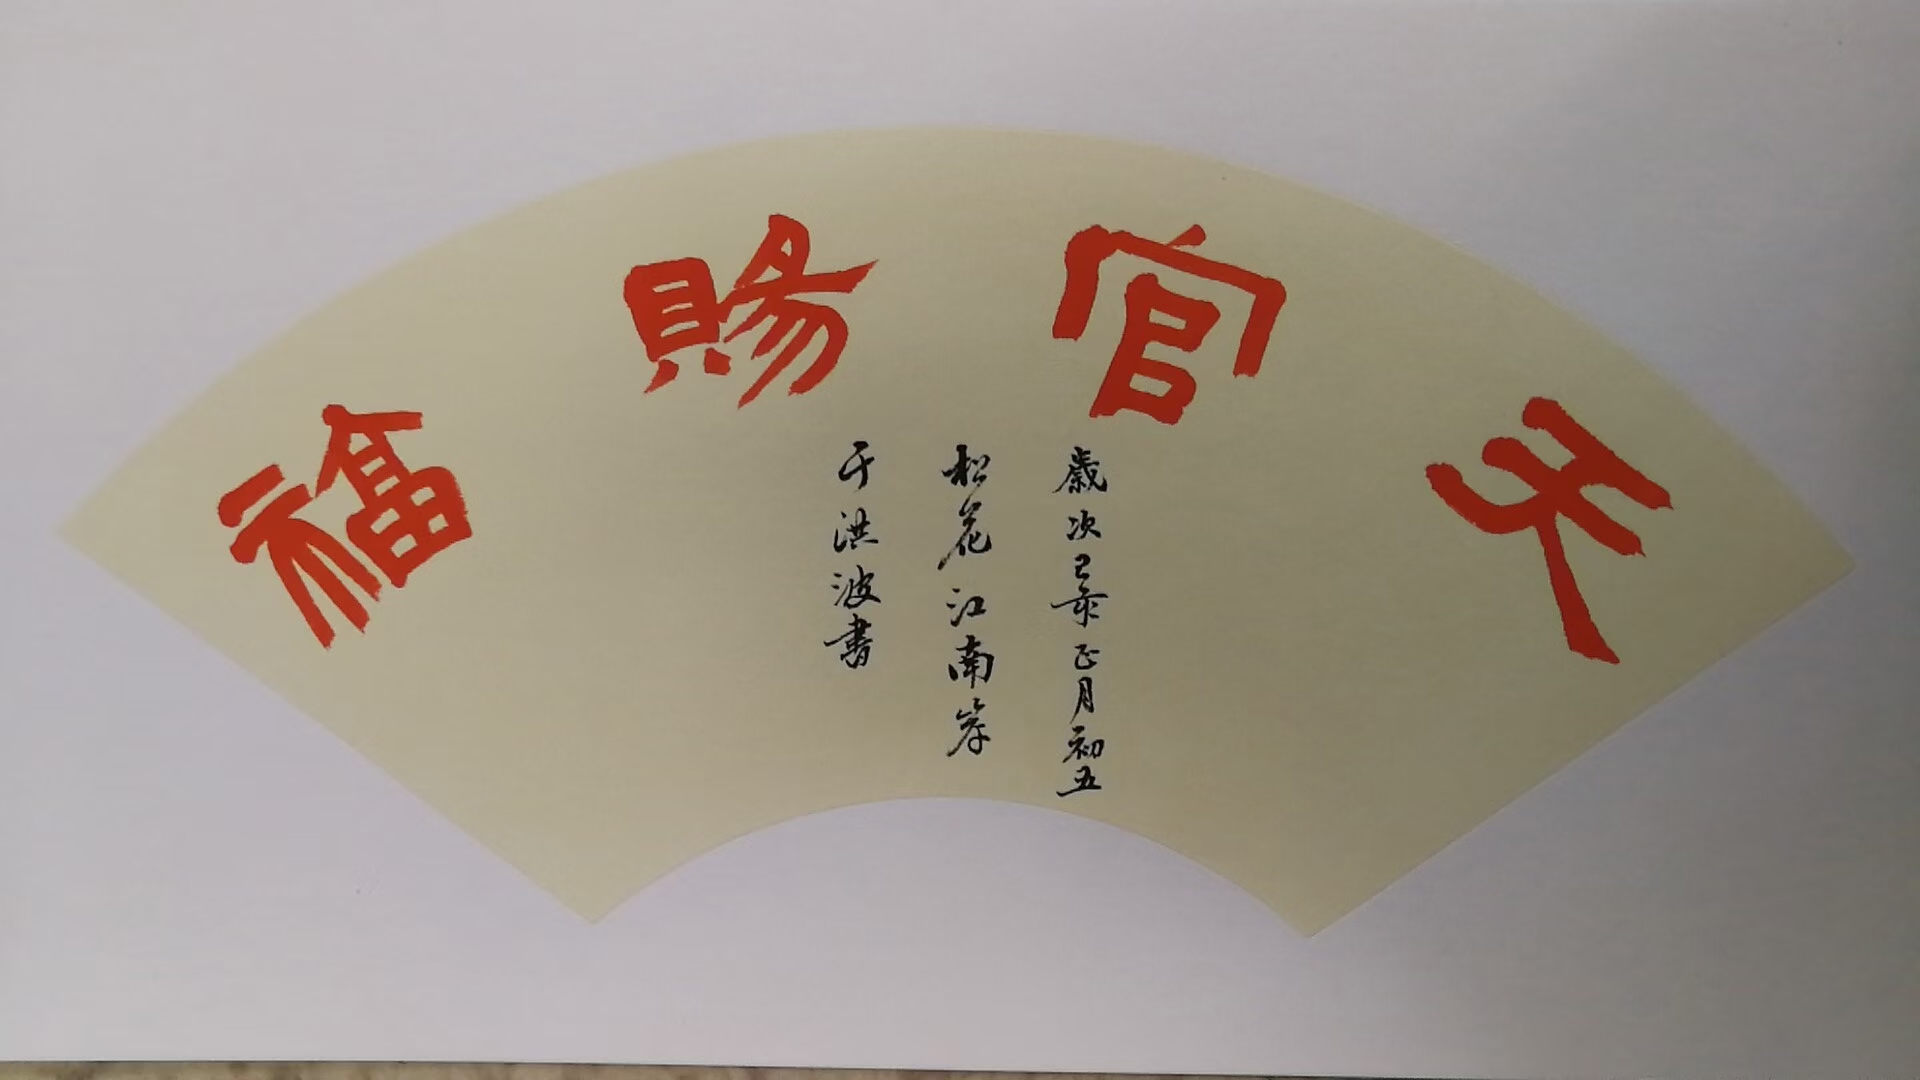 天官賜福
歲次己亥正月初五
松花江南岸
于洪波書